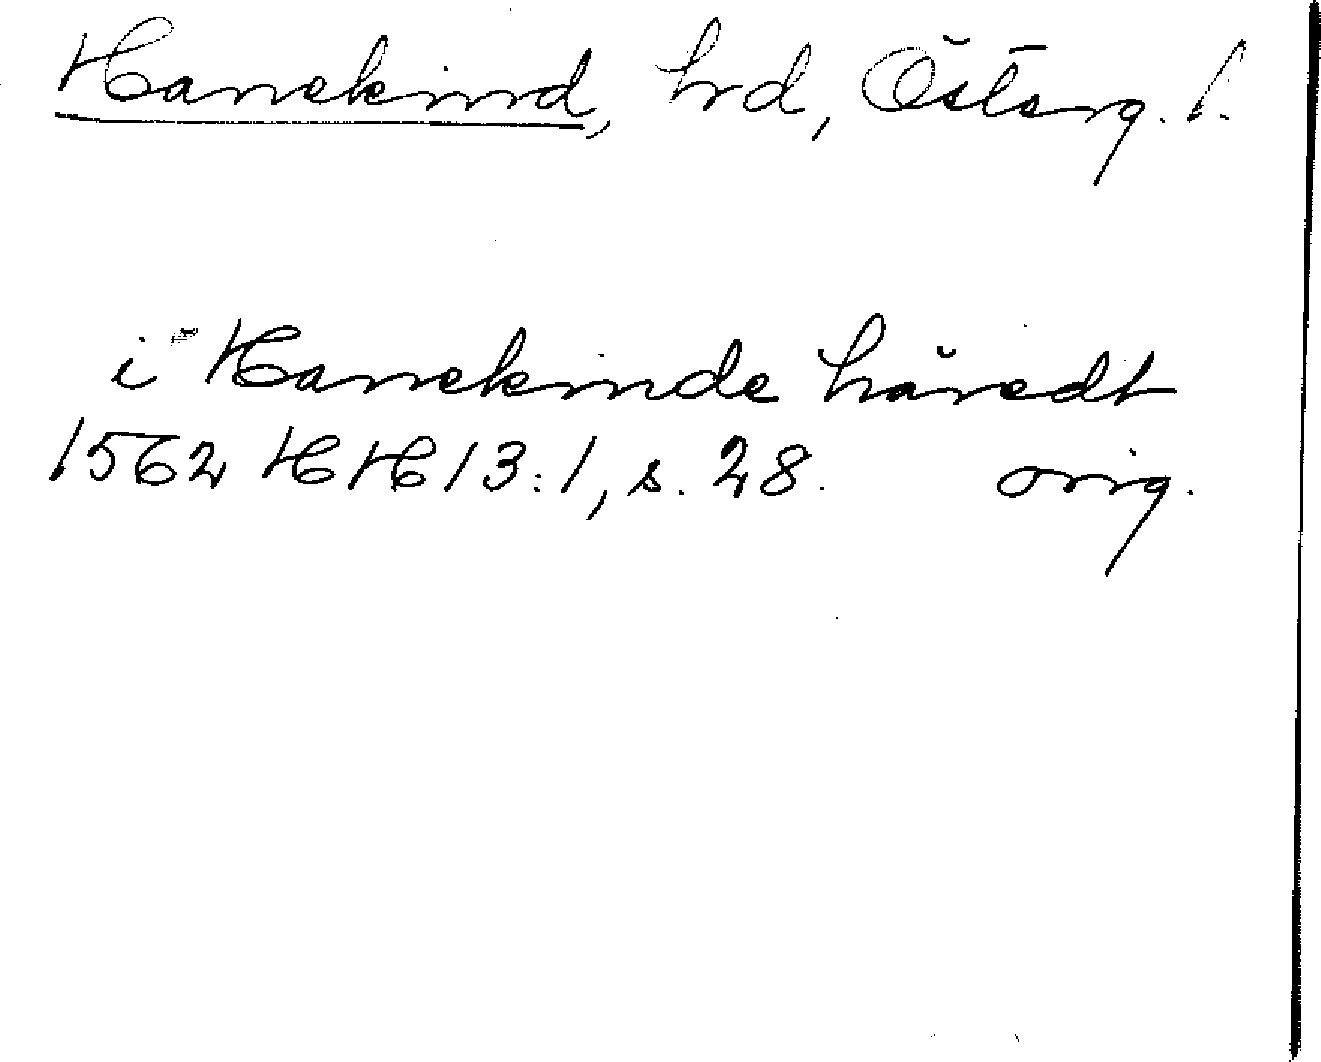 Hanekind, hrd, Österg. l.
i Hanekinde häredt
1562 HH 13:1, s. 28. orig.